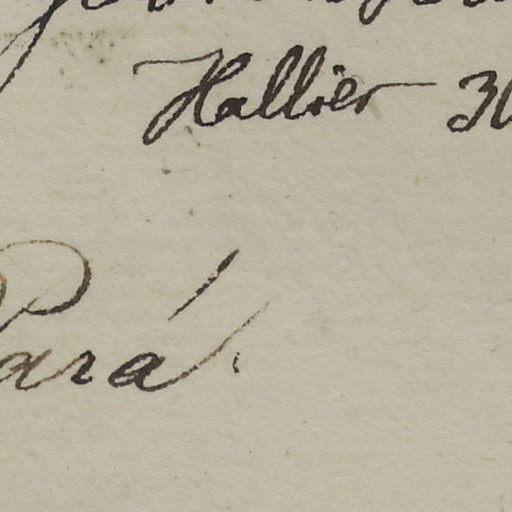 Hallier 30
Pará.